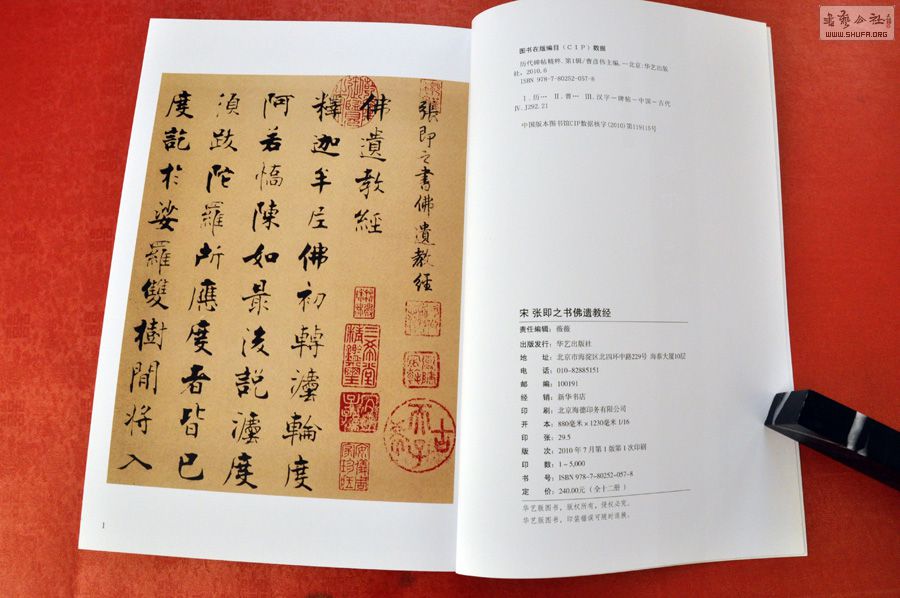 張即之書佛遺教經
佛遺教經
釋迦牟尼佛初轉瀍輪度
阿若憍陳如最後說瀍度
須跋陀羅所應度者皆已
度訖於娑羅雙樹間將入
三希堂
古
天子
1
图书在版编目（CIP）数据
历代碑帖精粹.第1辑/曹彦伟主编.—北京：华艺出版
社，2010.6
ISBN 978-7-80252-057-8
Ⅰ.历… Ⅱ.曹… Ⅲ.汉字－碑帖－中国－古代
Ⅳ.J292.21
中国版本图书馆CIP数据核字(2010)第119115号
宋 张即之书佛遗教经
责任编辑：薇薇
出版发行：华艺出版社
地 址：北京市海淀区北四环中路229号 海泰大厦10层
电 话：010-82885151
邮 编：100191
经 销：新华书店
印 刷：北京海德印务有限公司
开 本：880毫米×1230毫米 1/16
印 张：29.5
版 次：2010年7月第1版第1次印刷
印 数：1～5,000
书 号：ISBN 978-7-80252-057-8
定 价：240.00元（全十二册）
华艺版图书，版权所有，侵权必究。
华艺版图书，印装错误可随时退换。
WWW.SHUFA.ORG